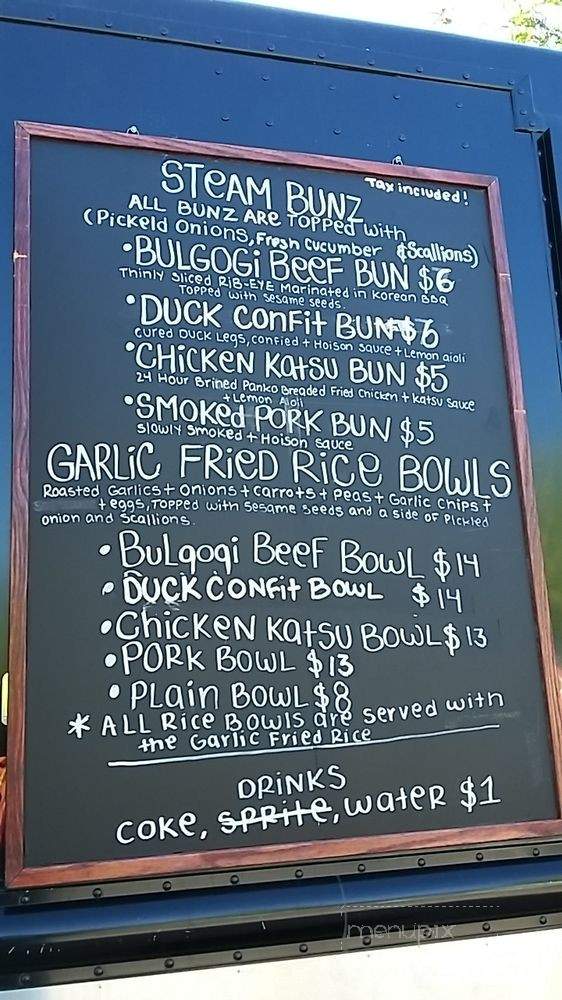 STEAM BUNZ
Tax included!
ALL BUNZ ARE TOPPED with
(Pickeld Onions, Fresh Cucumber & Scallions)
•BULGOGi BEEF BUN $6
Thinly Sliced RIB-EYE Marinated in Korean BBQ
Topped with sesame seeds.
•DUCK CONFit BUN $6
Cured Duck Legs, confied + Hoison Sauce + Lemon aioli
•CHICKEN KAtSU BUN $5
24 Hour Brined Panko Breaded Fried Chicken + Katsu Sauce
+ Lemon Aioli
•SMOKed PORK BUN $5
Slowly Smoked + Hoison Sauce
GARLiC FRiED RiCE BOWLS
Roasted Garlics + Onions + Carrots + Peas + Garlic Chips +
+ eggs, TOPPED with Sesame Seeds and a side of Pickled
Onion and Scallions.
•BuLgogi BeeF BowL $14
•DUCK CONFit BOWL $14
•ChicKeN KatSU BOWL $13
•PORK BOWL $13
•PLain BOWL $8
* ALL Rice BOWLS are served with
the Garlic Fried Rice
DRiNKS
COKe, SPRite, WateR $1
menupix